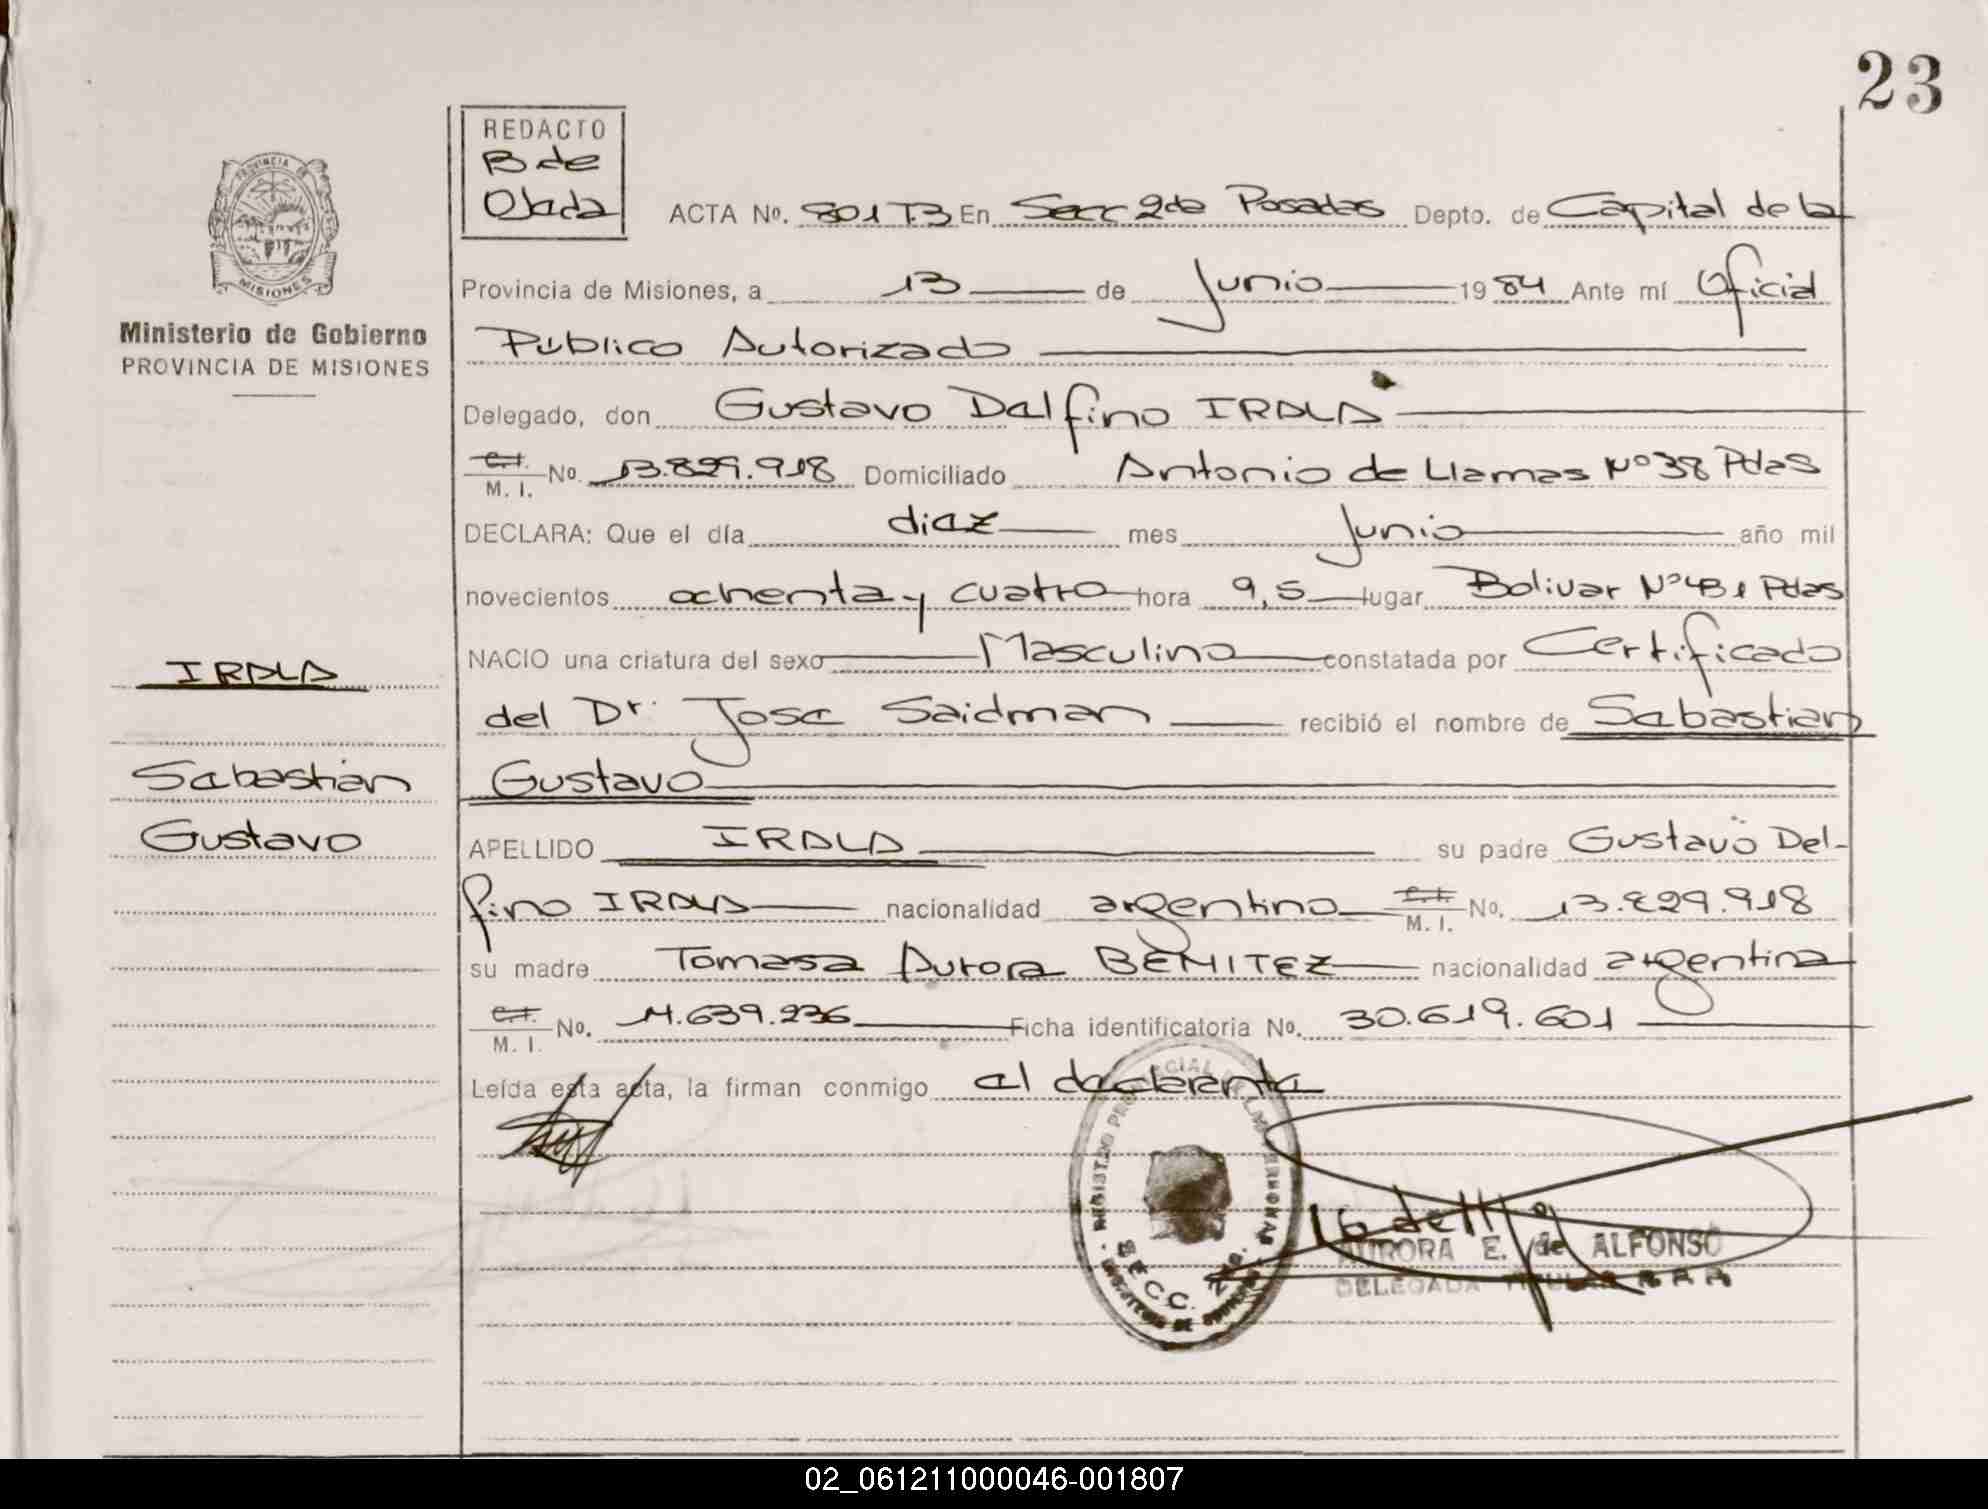 23
REDACTO
B de
Ojeda
PROVINCIA DE
MISIONES
Ministerio de Gobierno
PROVINCIA DE MISIONES
ACTA No. 801 T.3 En Secc 2da Posadas Depto. de Capital de la
Provincia de Misiones, a 13 de Junio 1984 Ante mí Oficial
Público Autorizado
Delegado, don Gustavo Delfino IRALA
C.I. M. I. No. 13.829.918 Domiciliado Antonio de Llamas Nº 38 Pdas
DECLARA: Que el día diez mes Junio año mil
novecientos ochenta y cuatro hora 9,5 lugar Bolivar Nº 431 Pdas
NACIO una criatura del sexo Masculino constatada por Certificado
del Dr. Jose Saidman recibió el nombre de Sebastian
Gustavo
IRALA
Sebastian
Gustavo
APELLIDO IRALA su padre Gustavo Del-
fino IRALA nacionalidad argentino C.I. M. I. No. 13.829.918
su madre Tomasa Aurora BENITEZ nacionalidad argentina
C.I. M. I. No. 14.639.236 Ficha identificatoria No. 30.619.601
Leída esta acta, la firman conmigo el declarante
SECC. 2da.
AURORA E. de ALFONSO
DELEGADA TITULAR
02_061211000046-001807